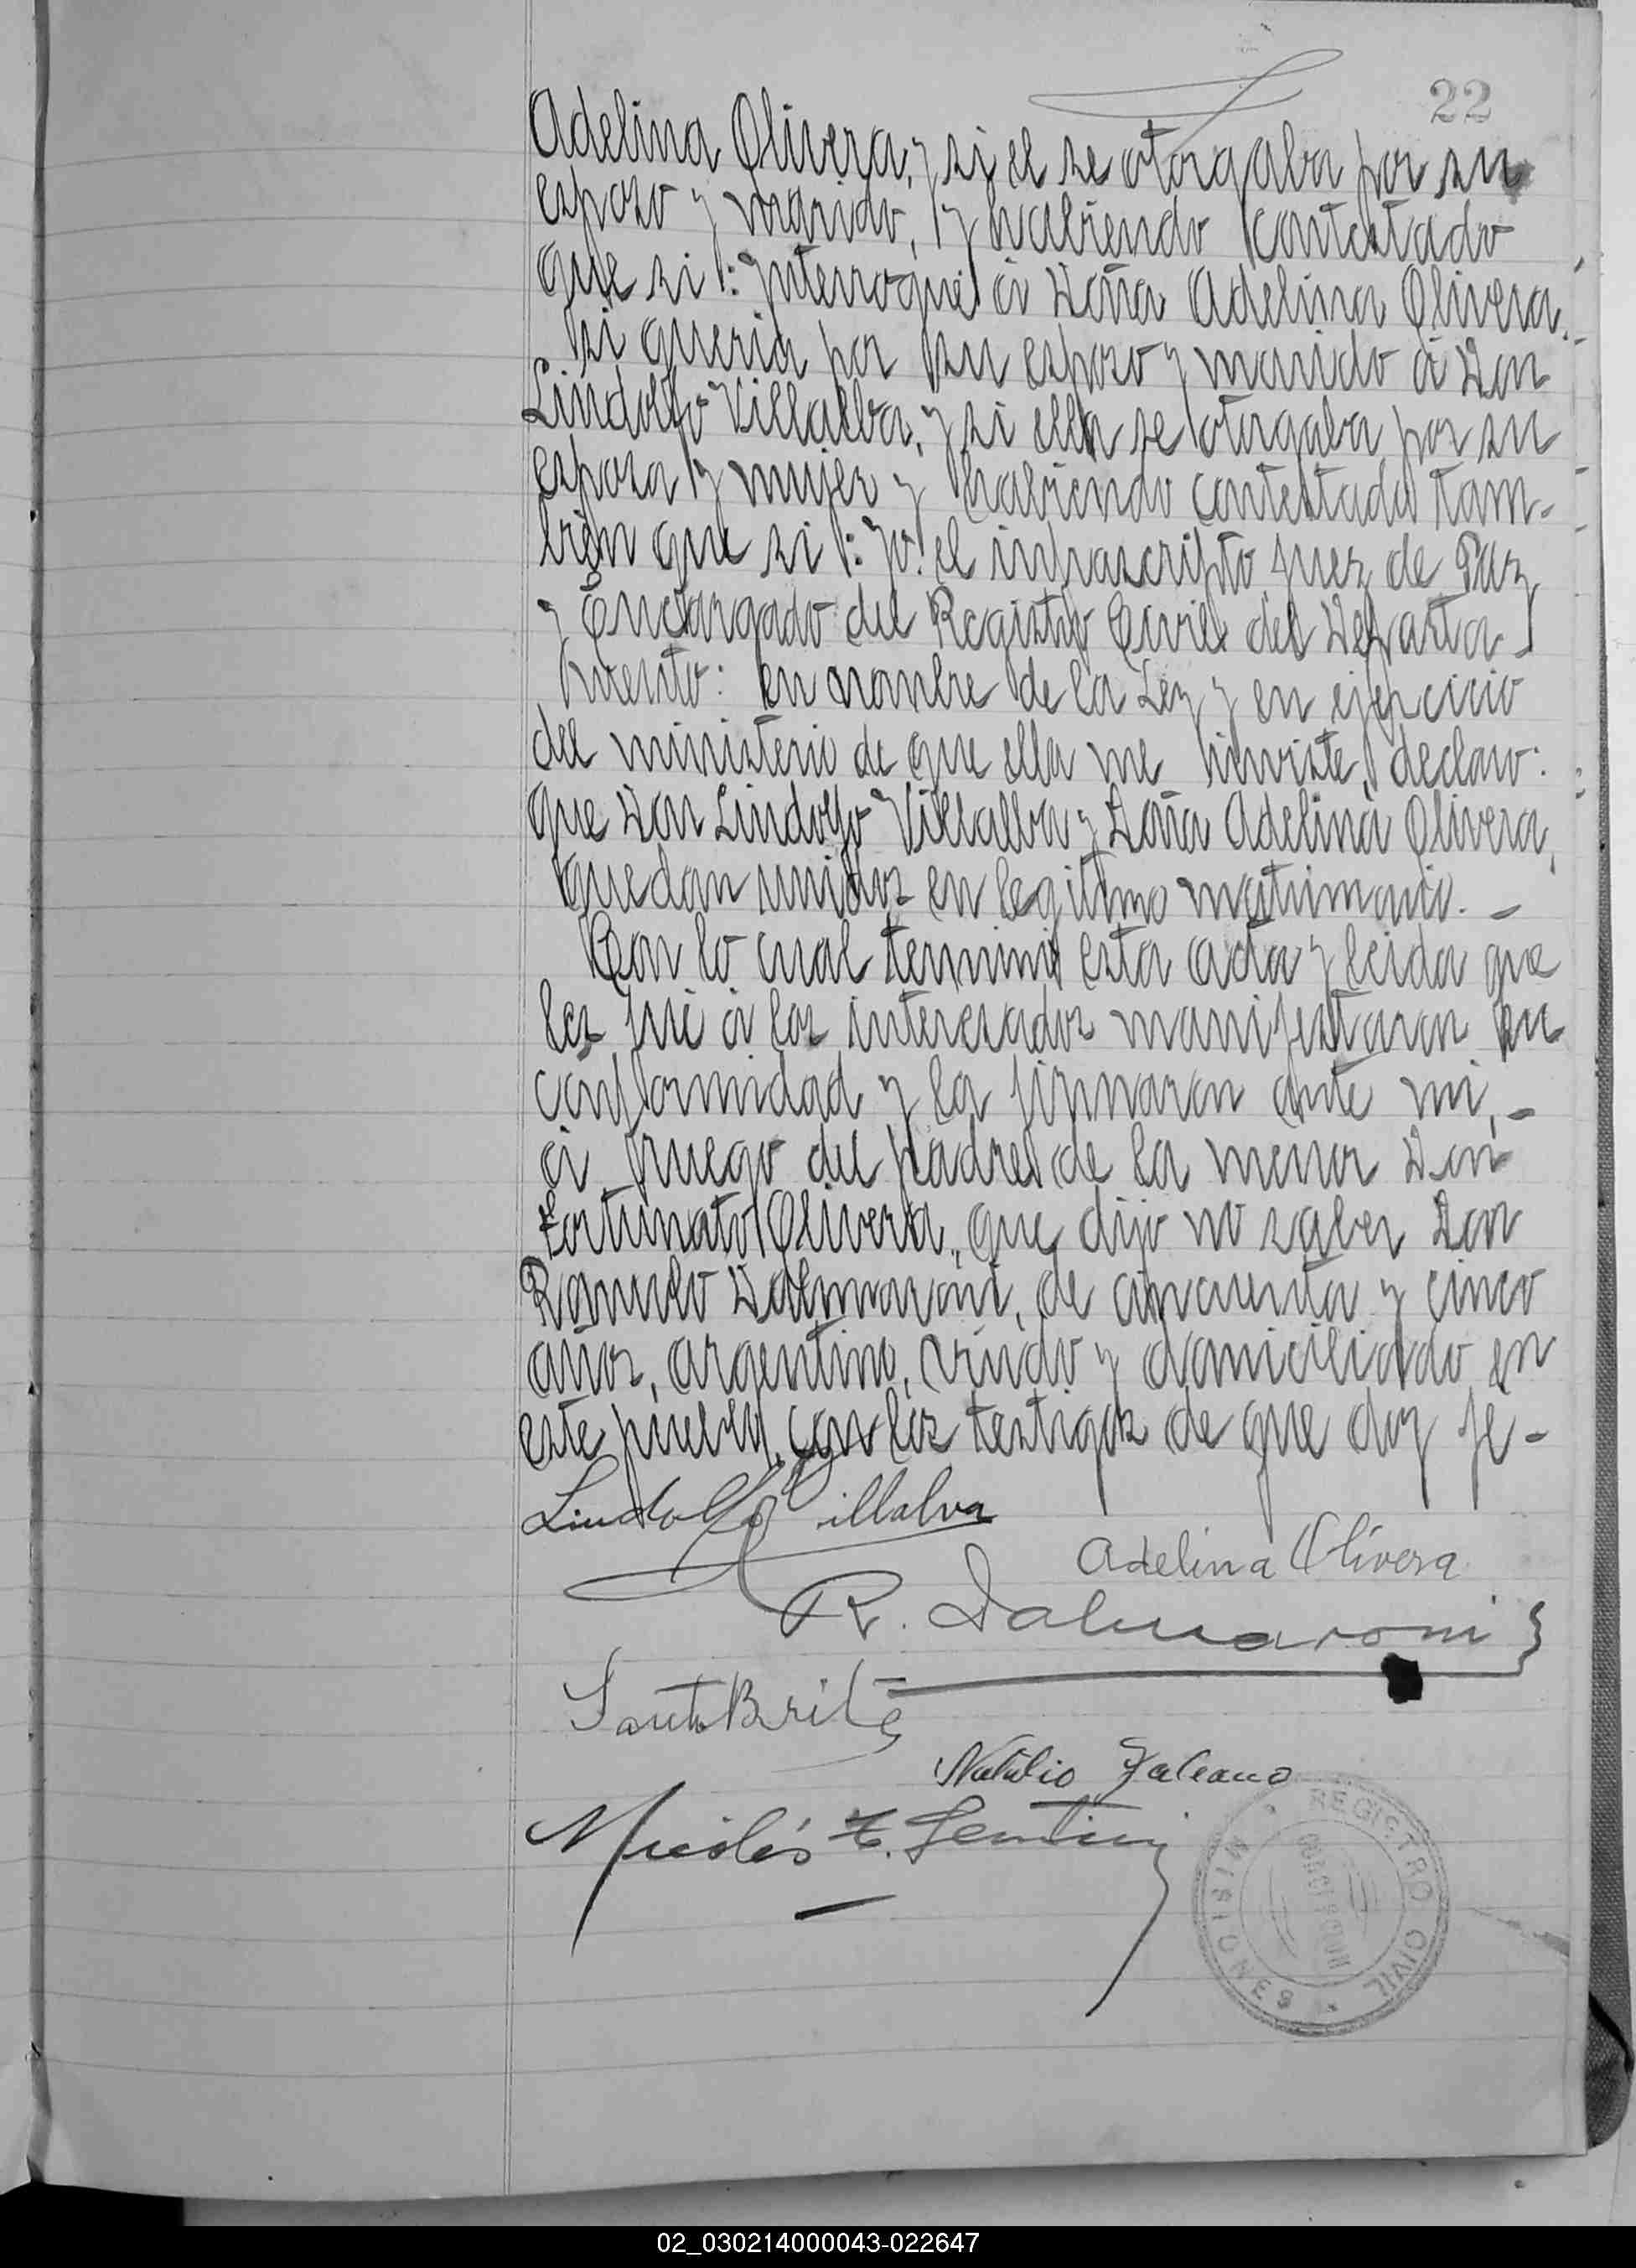 22
Adelina Olivera, y si el se otorgaba por su
esposo y marido, y habiendo contestado
que si: Interrogué á Doña Adelina Olivera.
si queria por su esposo y marido á Don
Lindolfo Villalba, y si ella se otorgaba por su
esposa y mujer y habiendo contestado tam-
bien que si: yo el infrascripto Juez de Paz
y Encargado del Registro Civil del Departa-
mento: en nombre de la Ley y en ejercicio
del ministerio de que ella me inviste, declaro:
que Don Lindolfo Villalba y Doña Adelina Olivera,
quedan unidos en legitimo matrimonio. -
Con lo cual terminó esta acta y leida que
les fué á los interesados manifestaron su
conformidad y la firmaron ante mi, -
á ruego del padre de la menor Don
Fortunato Olivera, que dijo no saber Don
Romulo Dalmaroni, de cincuenta y cinco
años, argentino, viudo y domiciliado en
este pueblo, con los testigos de que doy fé -
Lindolfo Villalva
Adelina Olivera
R. Dalmaroni
Santo Brite
Natalio Galeano
Nicolás
REGISTRO CIVIL
MISIONES
CONCEPCION
02_030214000043-022647